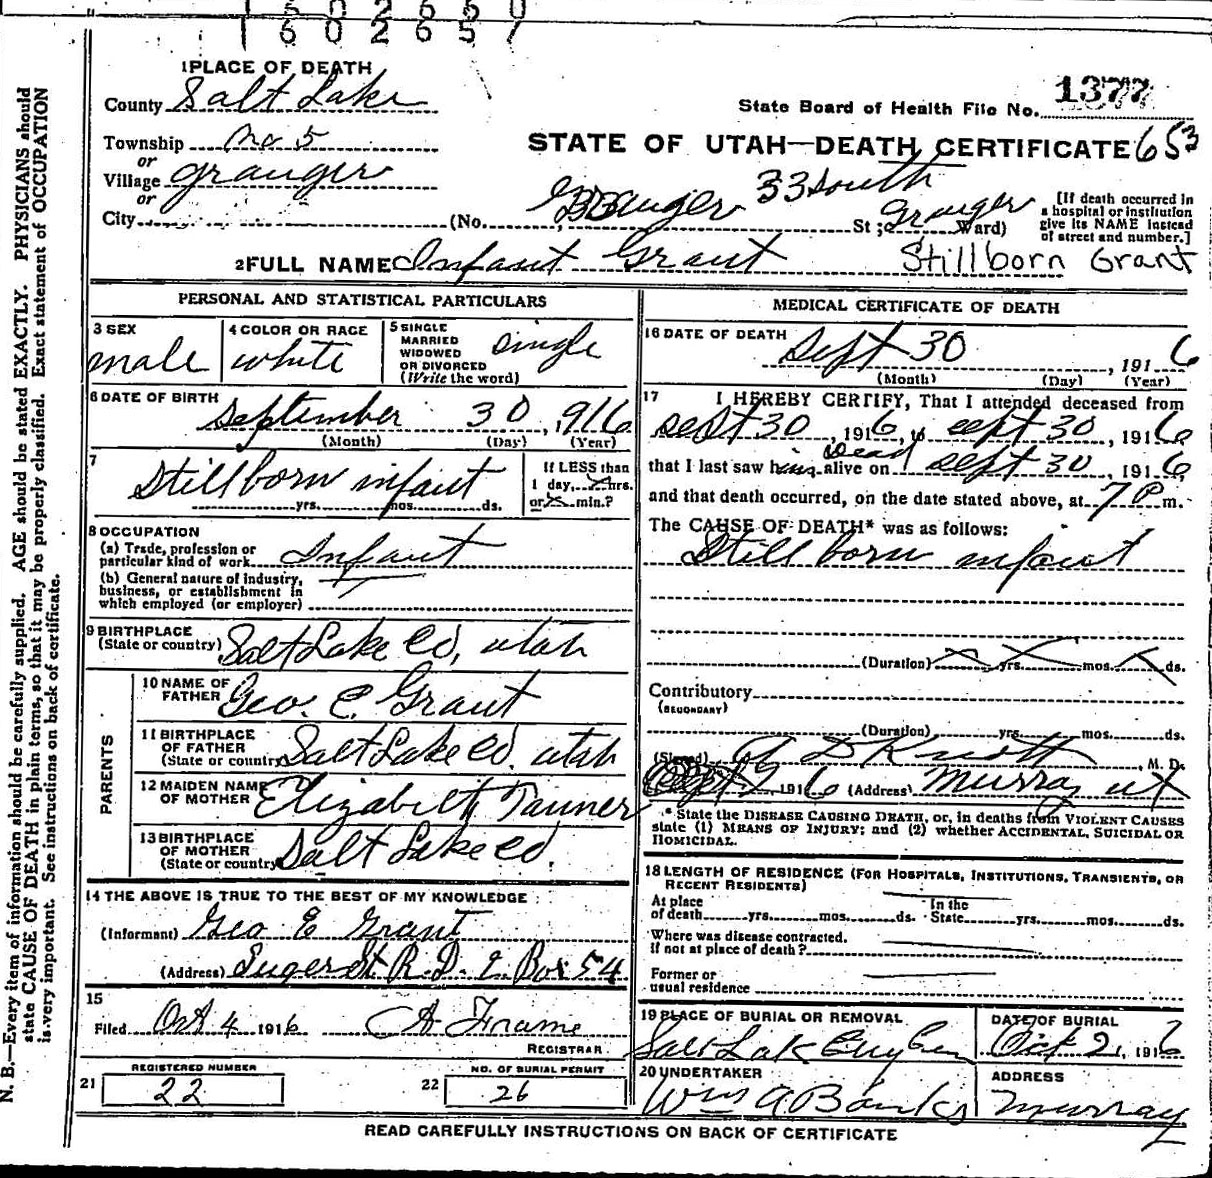 1602657
1 PLACE OF DEATH
County Salt Lake
State Board of Health File No. 1377
Township No 5
STATE OF UTAH—DEATH CERTIFICATE 653
or
Village Granger
or
33 South
City (No. St; Granger Ward)
[If death occurred in a hospital or institution give its NAME instead of street and number.]
2 FULL NAME Infant Grant Stillborn Grant
PERSONAL AND STATISTICAL PARTICULARS
3 SEX male
4 COLOR OR RACE white
5 SINGLE MARRIED WIDOWED OR DIVORCED (Write the word) single
6 DATE OF BIRTH
September 30, 1916
(Month) (Day) (Year)
7 Stillborn infant
yrs. mos. ds.
If LESS than
1 day, x hrs.
or x min.?
8 OCCUPATION
(a) Trade, profession or
particular kind of work Infant
(b) General nature of industry,
business, or establishment in
which employed (or employer)
9 BIRTHPLACE
(State or country) Salt Lake Co, utah
PARENTS
10 NAME OF
FATHER Geo. E. Grant
11 BIRTHPLACE
OF FATHER
(State or country) Salt Lake Co. utah
12 MAIDEN NAME
OF MOTHER Elizabeth Tanner
13 BIRTHPLACE
OF MOTHER
(State or country) Salt Lake Co.
14 THE ABOVE IS TRUE TO THE BEST OF MY KNOWLEDGE
(Informant) Geo E Grant
(Address) R.D. 2 Box 54
15
Filed Oct 4 1916 A Frame
REGISTRAR
21 REGISTERED NUMBER
22
22 NO. OF BURIAL PERMIT
26
MEDICAL CERTIFICATE OF DEATH
16 DATE OF DEATH
Sept 30, 1916
(Month) (Day) (Year)
17 I HEREBY CERTIFY, That I attended deceased from
Sept 30, 1916, to Sept 30, 1916
Dead
that I last saw him alive on Sept 30, 1916,
and that death occurred, on the date stated above, at 7 P m.
The CAUSE OF DEATH* was as follows:
Still born infant
(Duration) x yrs. x mos. x ds.
Contributory
(SECONDARY)
(Duration) yrs. mos. ds.
(Signed) D Knott, M. D.
2, 1916 (Address) Murray ut
* State the DISEASE CAUSING DEATH, or, in deaths from VIOLENT CAUSES
state (1) MEANS OF INJURY; and (2) whether ACCIDENTAL, SUICIDAL OR
HOMICIDAL.
18 LENGTH OF RESIDENCE (FOR HOSPITALS, INSTITUTIONS, TRANSIENTS, OR
RECENT RESIDENTS)
At place In the
of death yrs. mos. ds. State yrs. mos. ds.
Where was disease contracted.
if not at place of death?
Former or
usual residence
19 PLACE OF BURIAL OR REMOVAL
Salt Lak
DATE OF BURIAL
Oct 2, 1916
20 UNDERTAKER
Wm A Banks
ADDRESS
Murray
READ CAREFULLY INSTRUCTIONS ON BACK OF CERTIFICATE
N. B.—Every item of information should be carefully supplied. AGE should be stated EXACTLY. PHYSICIANS should
state CAUSE OF DEATH in plain terms, so that it may be properly classified. Exact statement of OCCUPATION
is very important. See instructions on back of certificate.